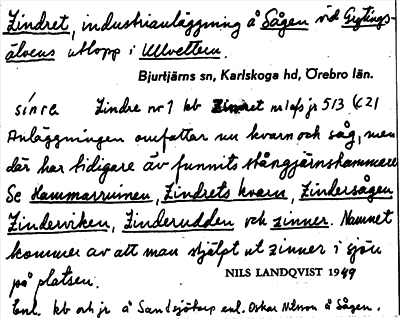 Zindret, industrianläggning å Sågen vid Grytings-
älvens utlopp i Ullvettern.
Bjurtjärns sn, Karlskoga hd, Örebro län.
sínre Zindre nr 1 kb jr 513 C21
Anläggningen omfattar nu kvarn och såg, men
där har tidigare äv funnits stångjärnshammare
Se Hammarruinen, Zindrets kvarn, Zindersågen
Zinderviken, Zinderudden och zinner. Namnet
kommer av att man stjälpt ut zinner i sjön
på platsen.
NILS LANDQVIST 1949
Enl. kb och jr å Sandsjötorp enl. Oskar Nilsson å Sågen.